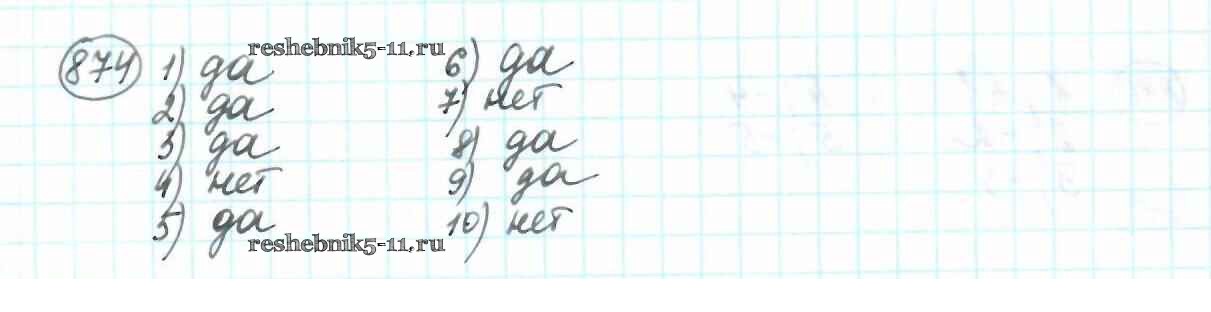 reshebnik5-11.ru
874 1) да 6) да
2) да 7) нет
3) да 8) да
4) нет 9) да
5) да 10) нет
reshebnik5-11.ru